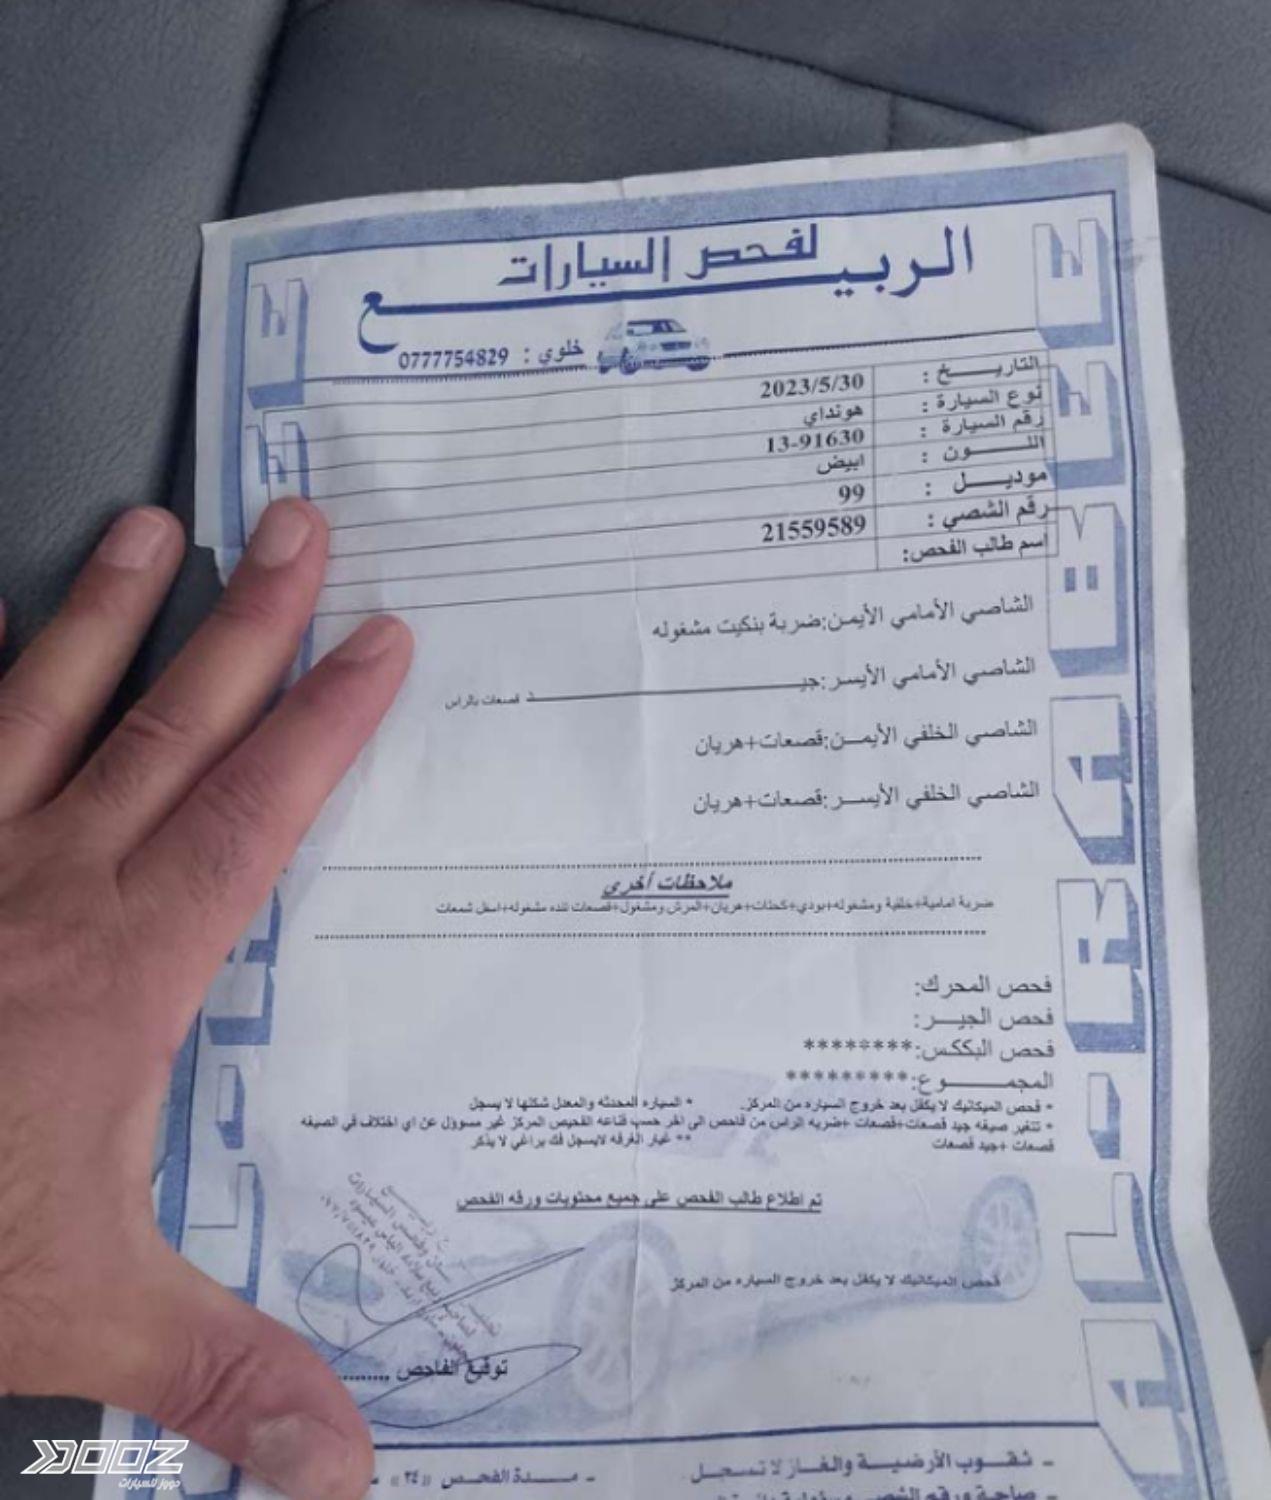 الربيع لفحص السيارات
خلوي : 0777754829
التاريخ : 2023/5/30
نوع السيارة : هونداي
رقم السيارة : 13-91630
اللون : ابيض
موديل : 99
رقم الشصي : 21559589
اسم طالب الفحص:
الشاصي الأمامي الأيمن:ضربة بنكيت مشغوله
الشاصي الأمامي الأيسر:جيد قصعات بالراس
الشاصي الخلفي الأيمن:قصعات+هريان
الشاصي الخلفي الأيسر:قصعات+هريان
ملاحظات أخرى
ضربة امامية+خلفية ومشغوله+بودي+كحتات+هريان+المرش ومشغول+قصعات تنده مشغوله+اسفل شمعات
فحص المحرك:
فحص الجير:
فحص البككس:********
المجموع:*********
* فحص الميكانيك لا يكفل بعد خروج السياره من المركز. * السياره المحدثه والمعدل شكلها لا يسجل
* تتغير صيغه جيد قصعات+قصعات +ضربه الراس من فاحص الى اخر حسب قناعه الفحيص المركز غير مسوؤل عن اي اختلاف في الصيغه
قصعات +جيد قصعات ** غيار الغرفه لايسجل فك براغي لا يذكر
تم اطلاع طالب الفحص على جميع محتويات ورقه الفحص
فحص الميكانيك لا يكفل بعد خروج السياره من المركز
توقيع الفاحص .........
- ثقوب الأرضية والغاز لا تسجل
- مدة الفحص «٢٤»
AL-RABEEH
DOOZ
دووز للسيارات